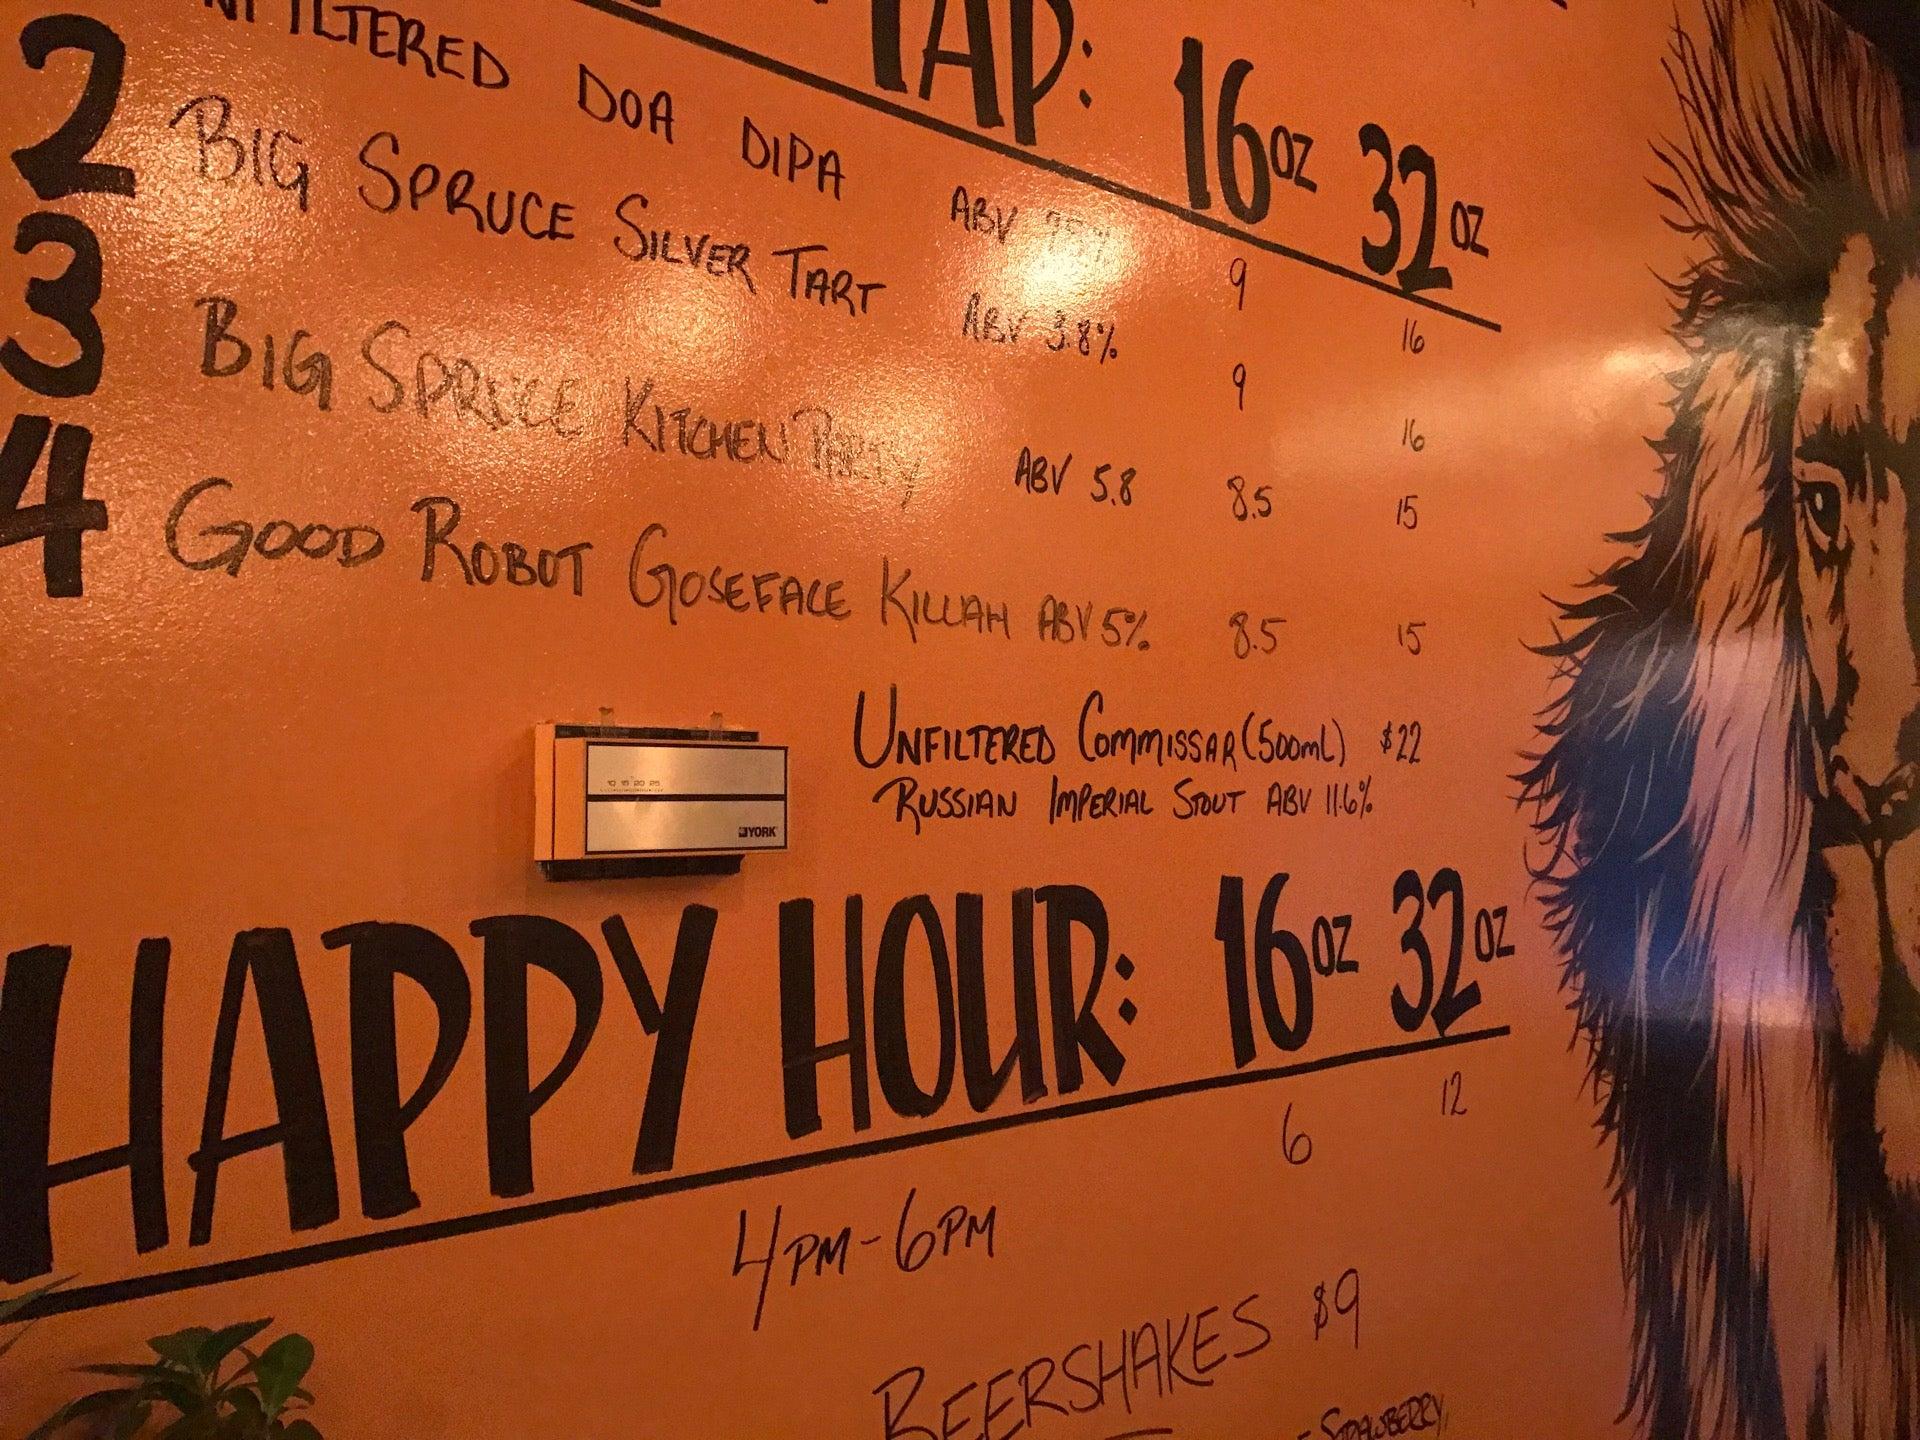 TAP: 16 OZ 32 OZ
UNFILTERED DOA DIPA ABV 9 16
2 BIG SPRUCE SILVER TART ABV 3.8% 9 16
3 BIG SPRUCE KITCHEN PARTY ABV 5.8 8.5 15
4 GOOD ROBOT GOSEFACE KILLAH ABV 5% 8.5 15
UNFILTERED COMMISSAR (500ML) $22
RUSSIAN IMPERIAL STOUT ABV 11.6%
10 15 20 25
YORK
HAPPY HOUR: 16 OZ 32 OZ
6 12
4PM-6PM
BEERSHAKES $9
- STRAWBERRY,